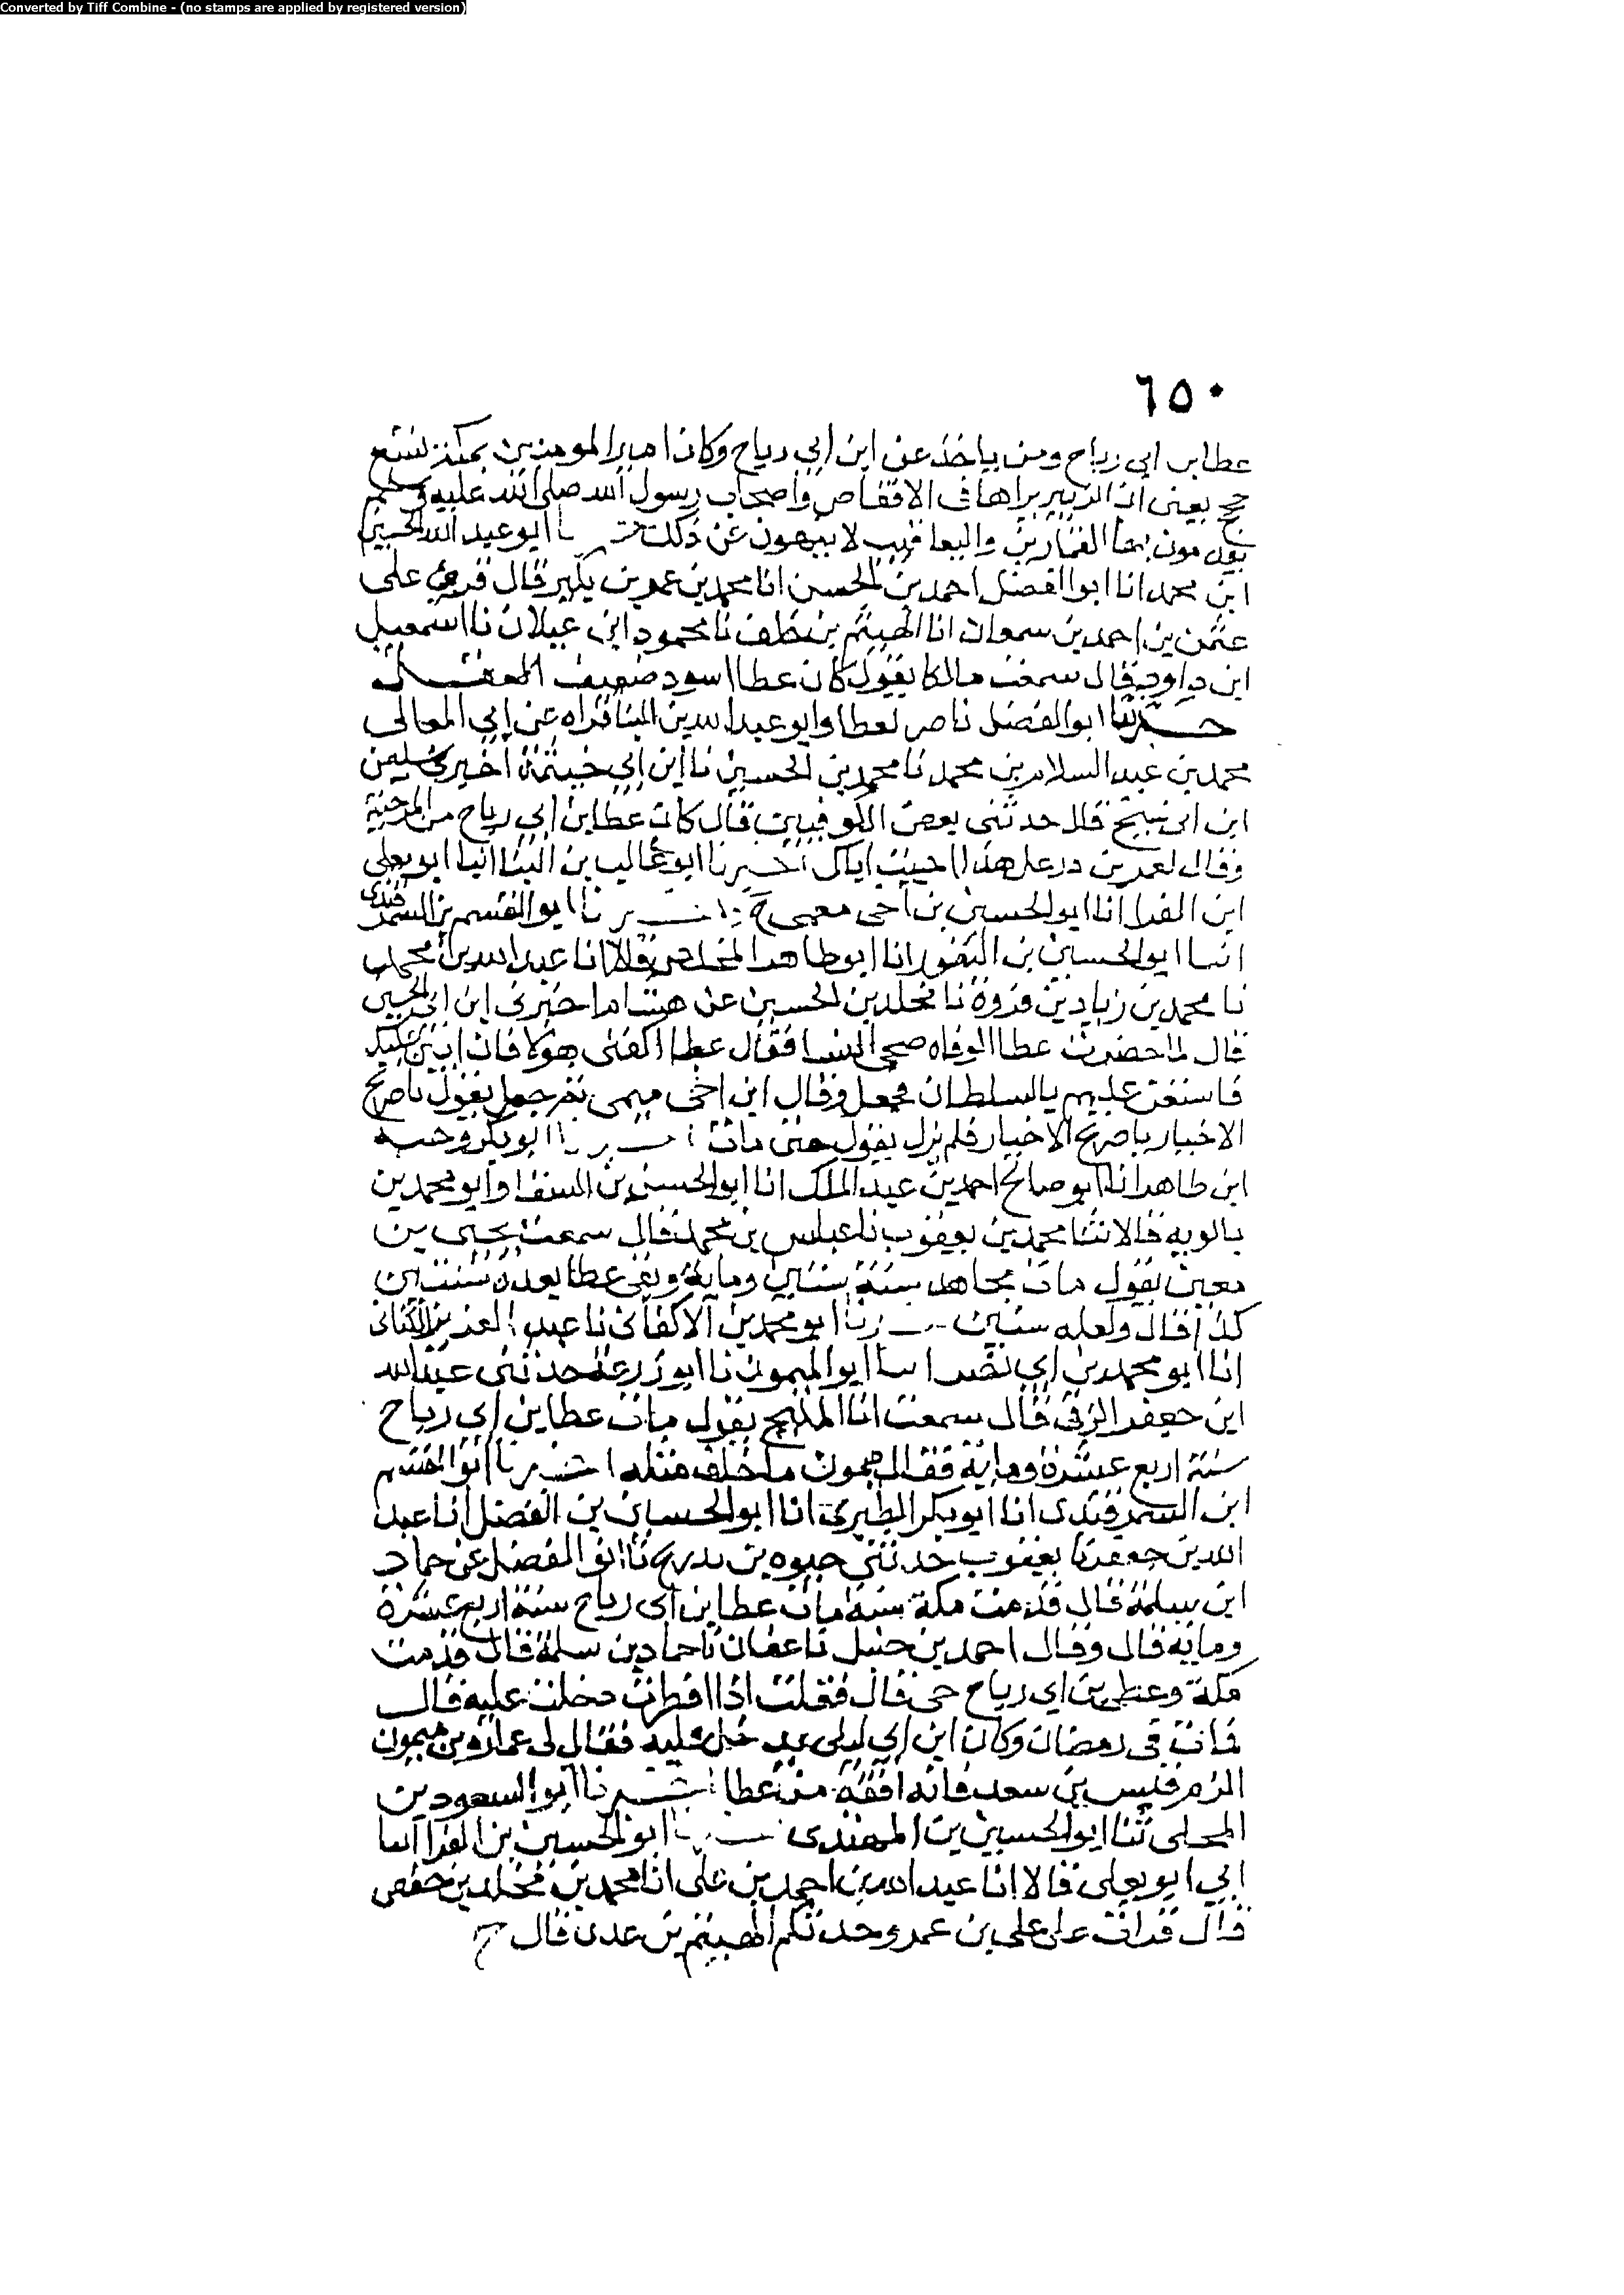 Converted by Tiff Combine - (no stamps are applied by registered version)
٦٥٠
عطا بن ابي رباح ومن ياخذ عن ابن ابي رباح وكان امير المومنين بمكة تسع
حجج يعني ابن الزبير يراها في الاقفاص واصحاب رسول الله صلى الله عليه وسلم
يقدمون بها القماري واليعاقيب لا ينهون عن ذلك ابو عبد الله الحسين
ابن محمد انا ابو الفضل احمد بن الحسن انا محمد بن عمر بن بكير قال قرئ على
عثمن بن احمد بن سمعان انا الهيثم بن خلف نا محمود ابن غيلان نا اسمعيل
ابن داود قال سمعت مالكا يقول كان عطا اسود ضعيف العقل
حدثنا ابو الفضل ناصر لفظا وابو عبد الله بن البنا قراه عن ابي المعالي
محمد بن عبد السلام بن محمد نا محمد بن الحسين نا ابن ابي خيثمة اخبرني سليمن
ابن ابي شيخ قال حدثني بعض الكوفيين قال كان عطا بن ابي رباح من المرجية
وقال لعمر بن ذر على هذا احببت اباك اخبرنا ابو غالب بن البنا انبا ابو يعلى
ابن الفرا انا ابو الحسين بن اخي ميمي ح نا ابو القسم بن السمرقندي
انبا ابو الحسين بن النقور انا ابو طاهر المخلص قالا انا عبد الله بن محمد
نا محمد بن زياد بن فروة نا مخلد بن الحسين عن هشام اخبرني ابن ابي
قال لما حضرت عطا الوفاه النسا فقال عطا اكفني هولا فان ابين عليك
فاستعن عليهم بالسلطان فجعل وقال ابن اخي ميمي ثم جعل يقول ناصريخ
الاخيار يا صريخ الاخيار فلم يزل يقول حتى مات ابو بكر وجيه
ابن طاهر انا ابو صالح احمد بن عبد الملك انا ابو الحسن بن السقا وابو محمد بن
بالويه قالا نا محمد بن يعقوب نا عباس بن محمد قال سمعت يحيى بن
معين يقول مات مجاهد سنة سنتين وماية وبقي عطا بعده سنتين
كذا قال ولعله سنين نا ابو محمد بن الاكفاني نا عبد العزيز الكتاني
انا ابو محمد بن ابي نصر انا ابو الميمون نا ابو زرعة حدثني عبد الله
ابن جعفر الرقي قال سمعت ابا المليح يقول مات عطا بن ابي رباح
سنة اربع عشرة وماية فقال ميمون ما خلف مثله اخبرنا ابو القسم
ابن السمرقندي انا ابو بكر الطبري انا ابو الحسين بن الفضل انا عبد
الله بن جعفر نا يعقوب حدثني حيوه بن نا ابو الفضل عن حماد
ابن سلمة قال قدمت مكة سنة مات عطا بن ابي رباح سنة اربع عشرة
وماية قال وقال احمد بن حنبل نا عفان نا حماد بن سلمة قال قدمت
مكة وعطا بن ابي رباح حي قال فقلت اذا افطرت دخلت عليه قال
فمات في رمضان وكان ابن ابي ليلى يدخل عليه فقال لي عمارة بن ميمون
الزم قيس بن سعد فانه افقه من عطا اخبرنا ابو السعود بن
المجلي ثنا ابو الحسين بن المهتدي ابو الحسين بن الفرا انبا
ابي ابو يعلى قالا انا عبيد الله بن احمد بن علي انا محمد بن مخلد بن حفص
قال قرات على علي بن عمرو حدثكم الهيثم بن عدي قال ح